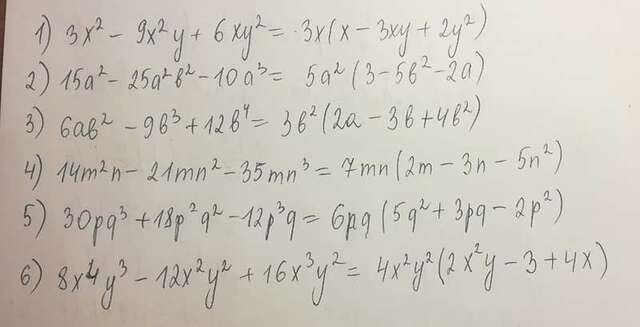 1) 3x² - 9x²y + 6xy² = 3x(x - 3xy + 2y²)
2) 15a² - 25a²b² - 10a³ = 5a²(3 - 5b² - 2a)
3) 6ab² - 9b³ + 12b⁴ = 3b²(2a - 3b + 4b²)
4) 14m²n - 21mn² - 35mn³ = 7mn(2m - 3n - 5n²)
5) 30pq³ + 18p²q² - 12p³q = 6pq(5q² + 3pq - 2p²)
6) 8x⁴y³ - 12x²y² + 16x³y² = 4x²y²(2x²y - 3 + 4x)